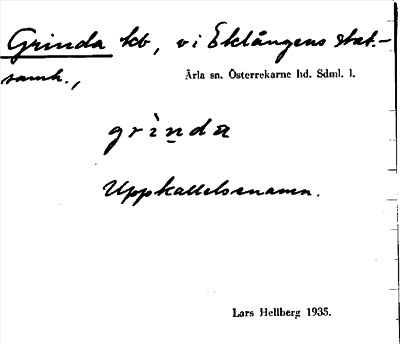 Grinda kb, v i Eklångens stat.-
samh.,
Ärla sn. Österrekarne hd. Sdml. l.
grìn̲da
Uppkallelsenamn.
Lars Hellberg 1935.